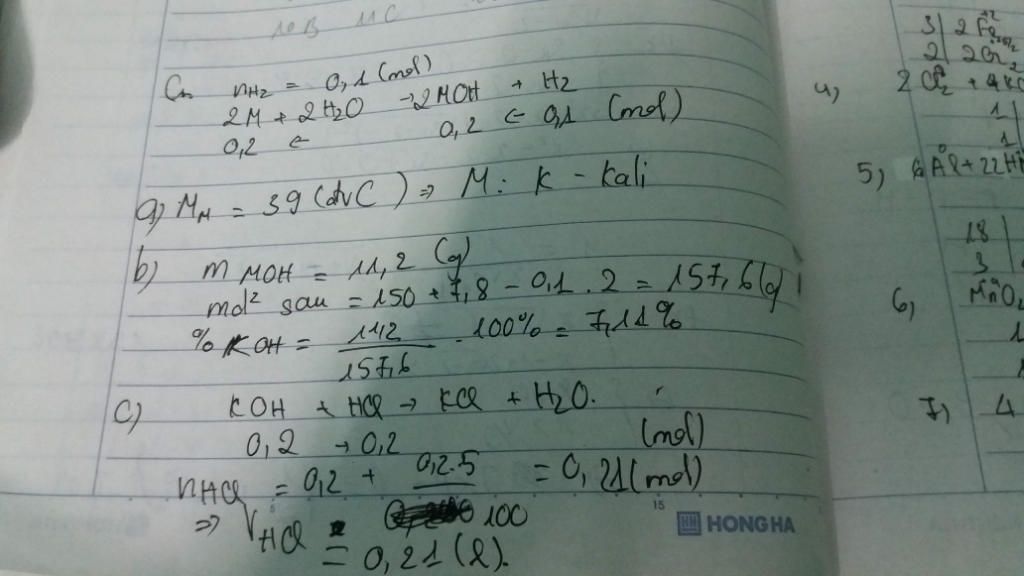 10B 11C
nH2 = 0,1 (mol)
2M + 2H2O → 2MOH + H2
0,2 ← 0,2 ← 0,1 (mol)
a) MM = 39 (đvC) ⇒ M: K - Kali
b) m MOH = 11,2 (g)
md2 sau = 150 + 7,8 - 0,1 . 2 = 157,6 (g)
% KOH = 11,2 / 157,6 . 100% = 7,11 %
c) KOH + HCl → KCl + H2O.
0,2 → 0,2 (mol)
nHCl = 0,2 + 0,2.5 / 100 = 0,21 (mol)
⇒ VHCl = 0,21 (l).
15
HONG HA
3 | 2
2 | 2
4)
1
1
5)
18
3
6) MnO2
1
7) 4